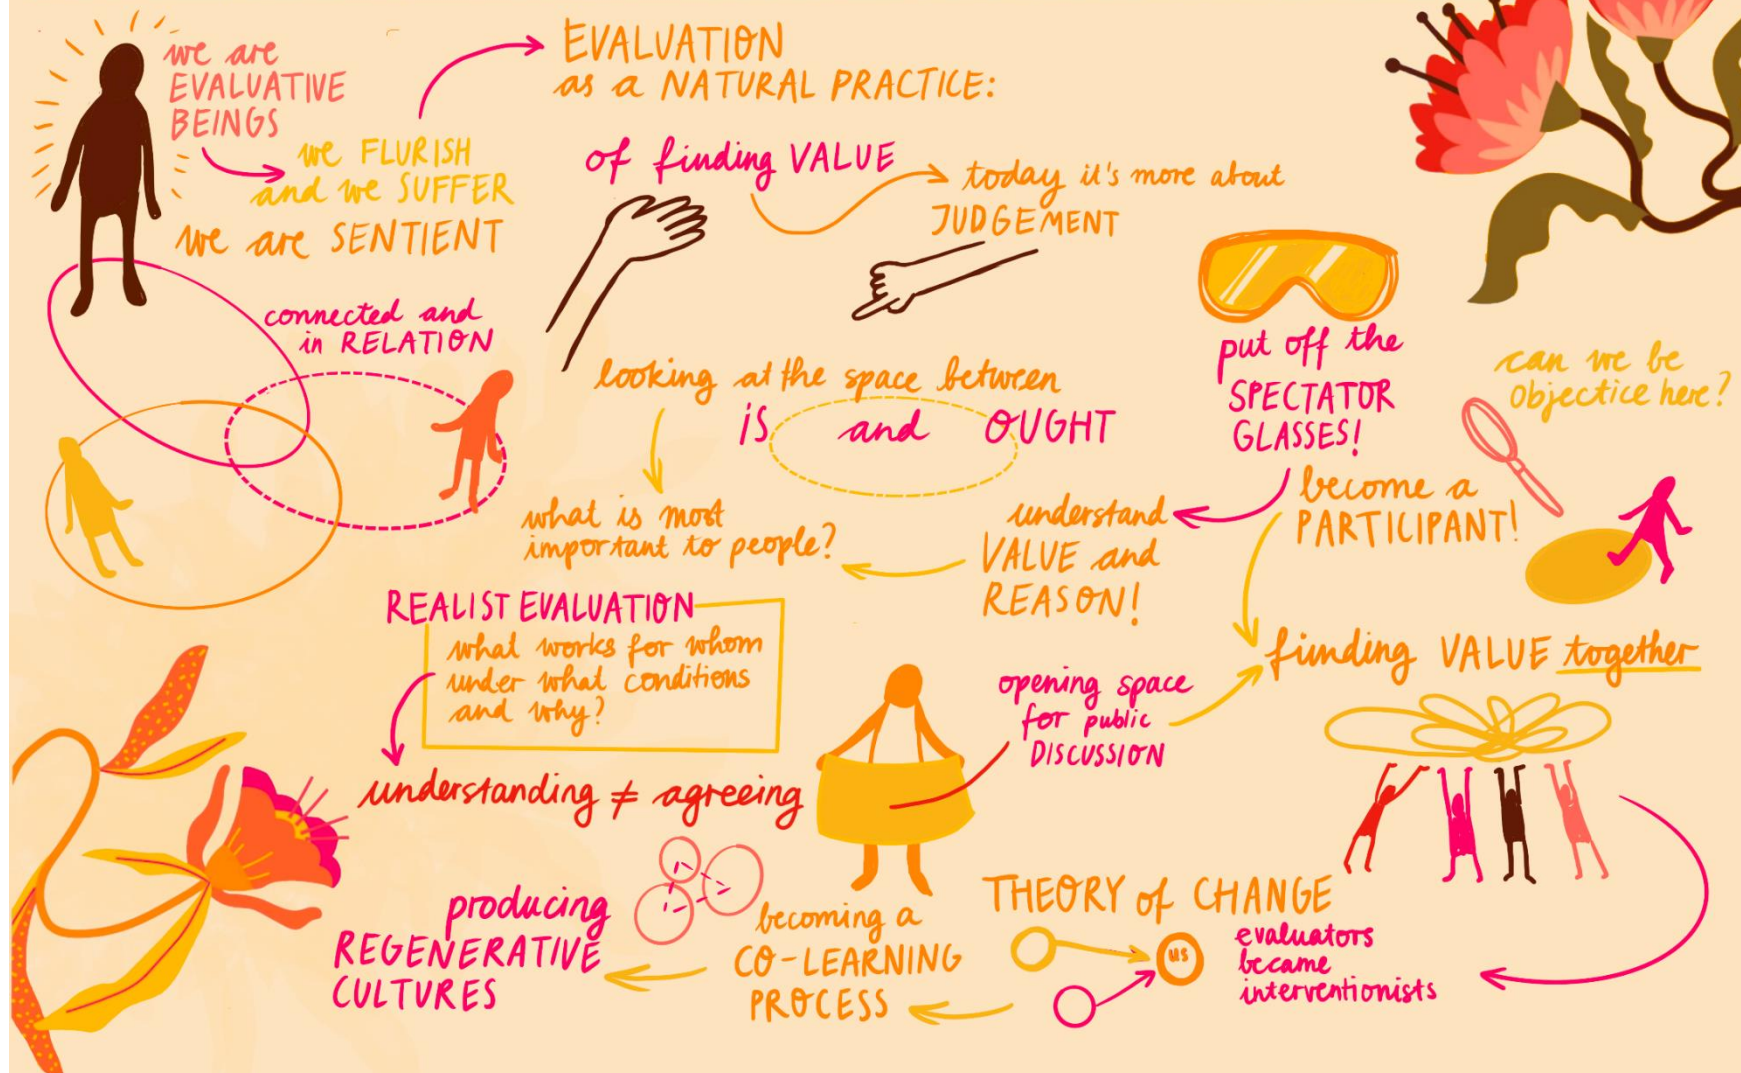 we are
EVALUATIVE
BEINGS
we FLURISH
and we SUFFER
we are SENTIENT
connected and
in RELATION
EVALUATION
as a NATURAL PRACTICE:
of finding VALUE
today it's more about
JUDGEMENT
looking at the space between
IS and OUGHT
what is most
important to people?
put off the
SPECTATOR
GLASSES!
can we be
objectice here?
become a
PARTICIPANT!
understand
VALUE and
REASON!
REALIST EVALUATION
what works for whom
under what conditions
and why?
understanding ≠ agreeing
opening space
for public
DISCUSSION
finding VALUE together
THEORY of CHANGE
US
evaluators
became
interventionists
becoming a
CO-LEARNING
PROCESS
producing
REGENERATIVE
CULTURES